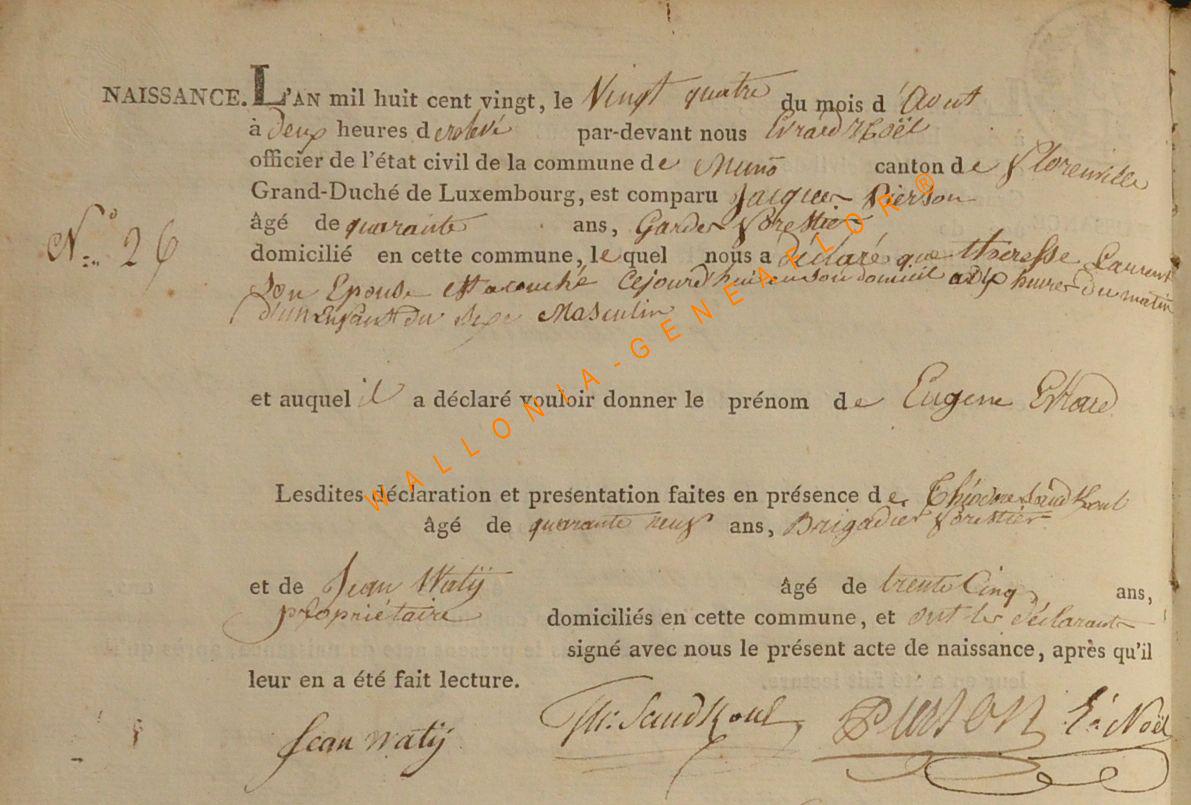 NAISSANCE. L'AN mil huit cent vingt, le Vingt quatre du mois d'Aout
à Deux heures de relevé par-devant nous Evrard Noël
officier de l'état civil de la commune de Muno canton de Florenville
Grand-Duché de Luxembourg, est comparu Jacques Pierson
âgé de quarante ans, Garde forestier
domicilié en cette commune, lequel nous a déclaré que théresse Laurent
Son Epouse est acouché Cejourd'hui en son domicil a Dix heures Du matin
d'un Enfant du Sexe Masculin
N° 26
et auquel il a déclaré vouloir donner le prénom de Eugene Evrard
Lesdites déclaration et presentation faites en présence de
âgé de quarante neuf ans, Brigadier forestier
et de Jean Watÿ âgé de trente Cinq ans,
propriétaire domiciliés en cette commune, et ont les déclarants
signé avec nous le présent acte de naissance, après qu'il
leur en a été fait lecture.
Jean watÿ PIERSON E. Noël
WALLONIA-GENEALOR ®